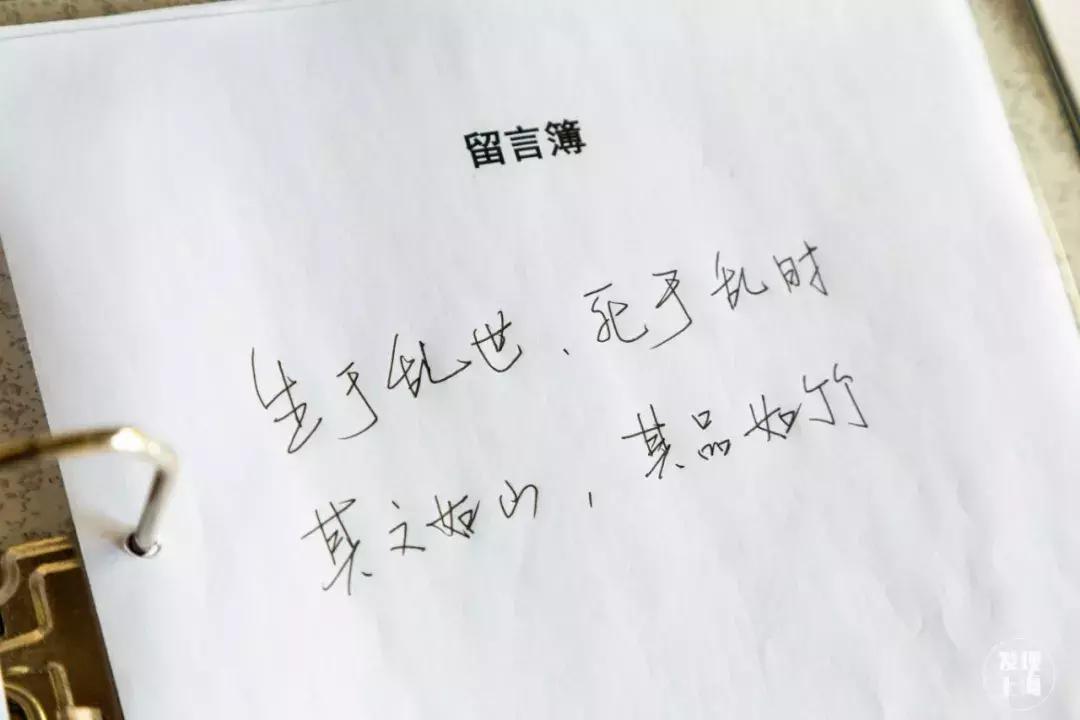 留言簿
生于乱世、死于乱时
其文如山，其品如竹
发现
上海